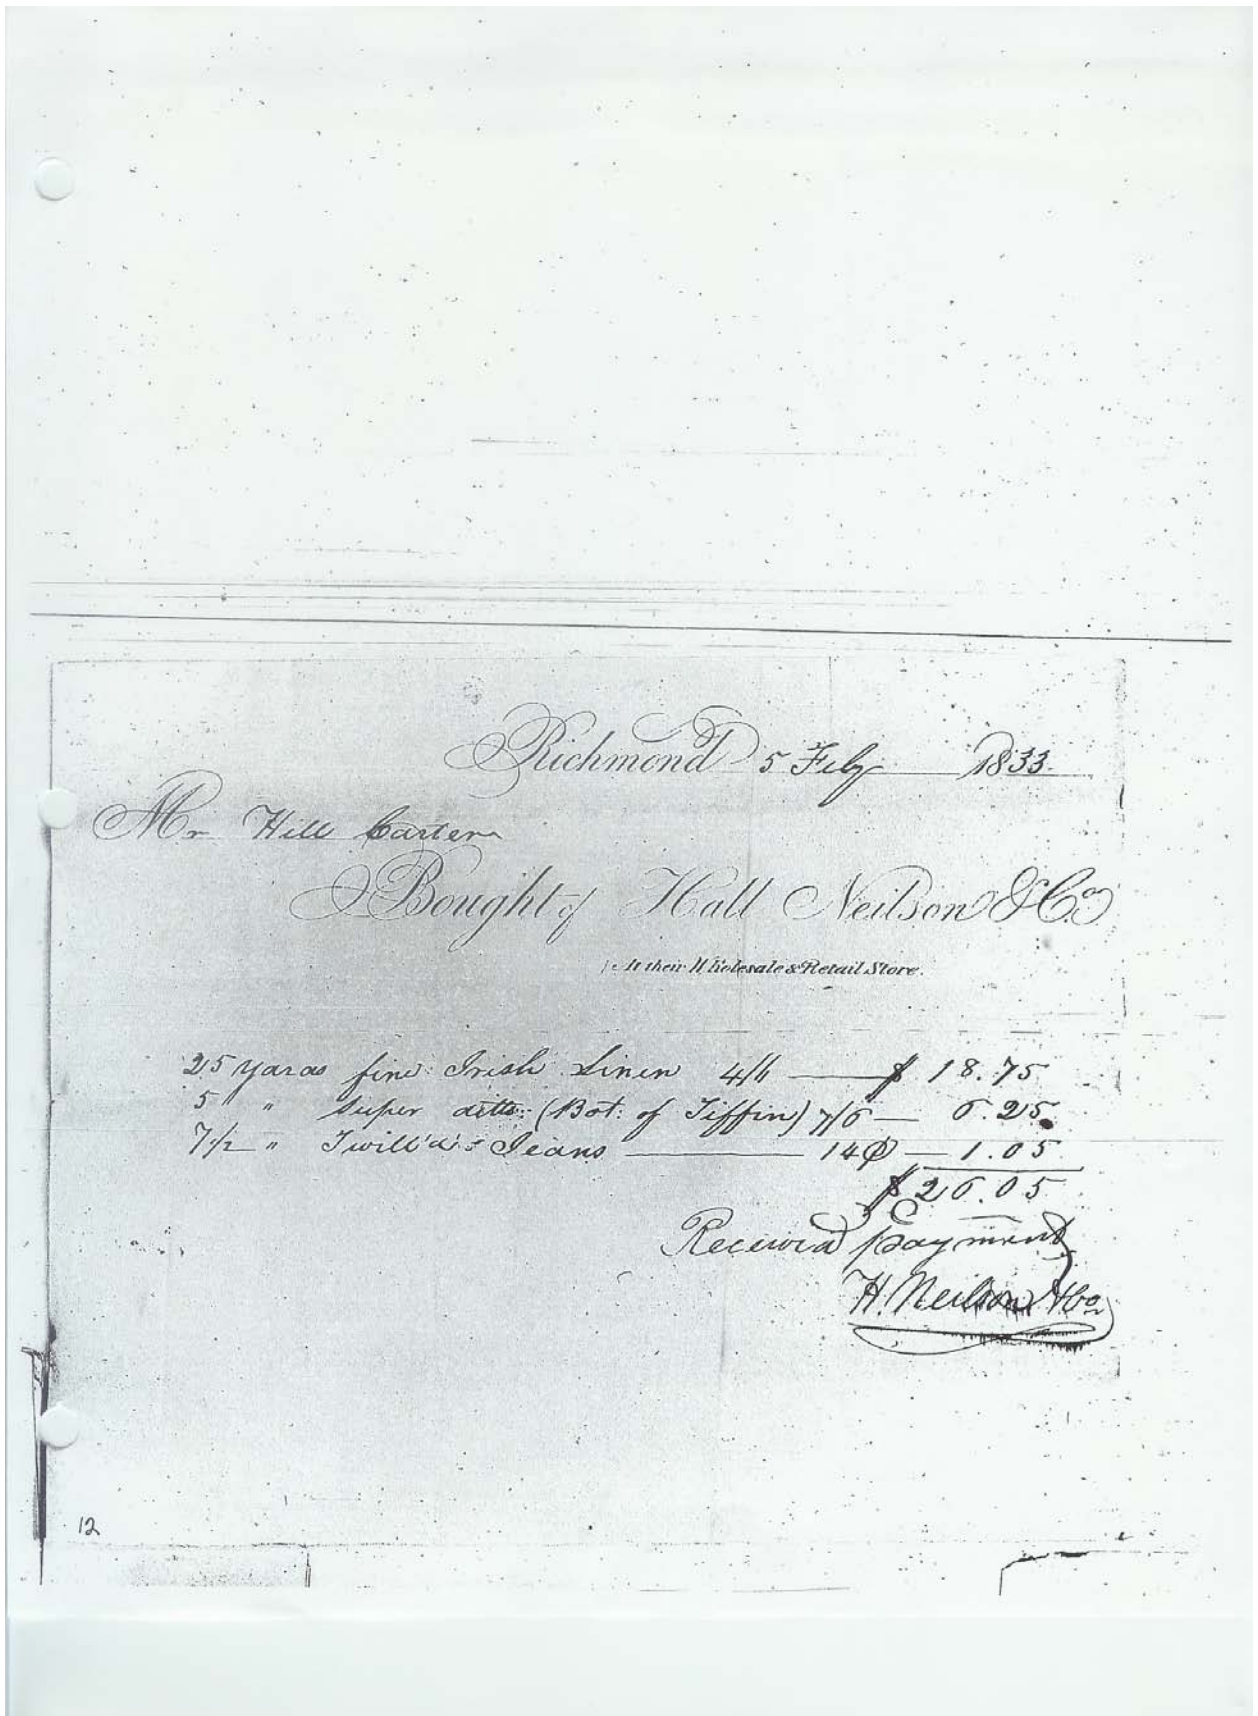 Richmond 5 Feby 1833.
Mr Hill Carter
Bought of Hall Neilson & Co.
At their Wholesale & Retail Store.
25 Yards fine Irish Linen 4/6 — $ 18.75
5 " super ditto (Bot: of Tiffin) 7/6 — 6.25
7 1/2 " Twill'd Jeans — 14¢ — 1.05
$ 26.05
Received payment
H. Neilson & Co
12